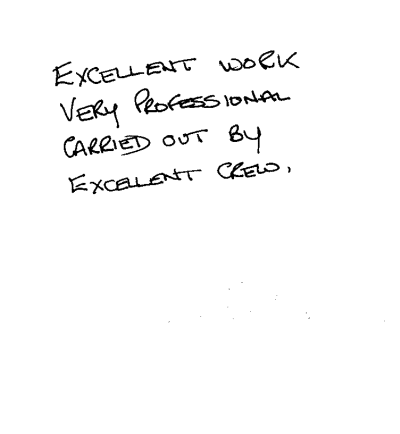 EXCELLENT WORK
VERY PROFESSIONAL
CARRIED OUT BY
EXCELLENT CREW.